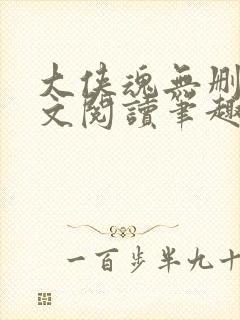 大侠魂無删
文閱讀筆趣
一百步半九十